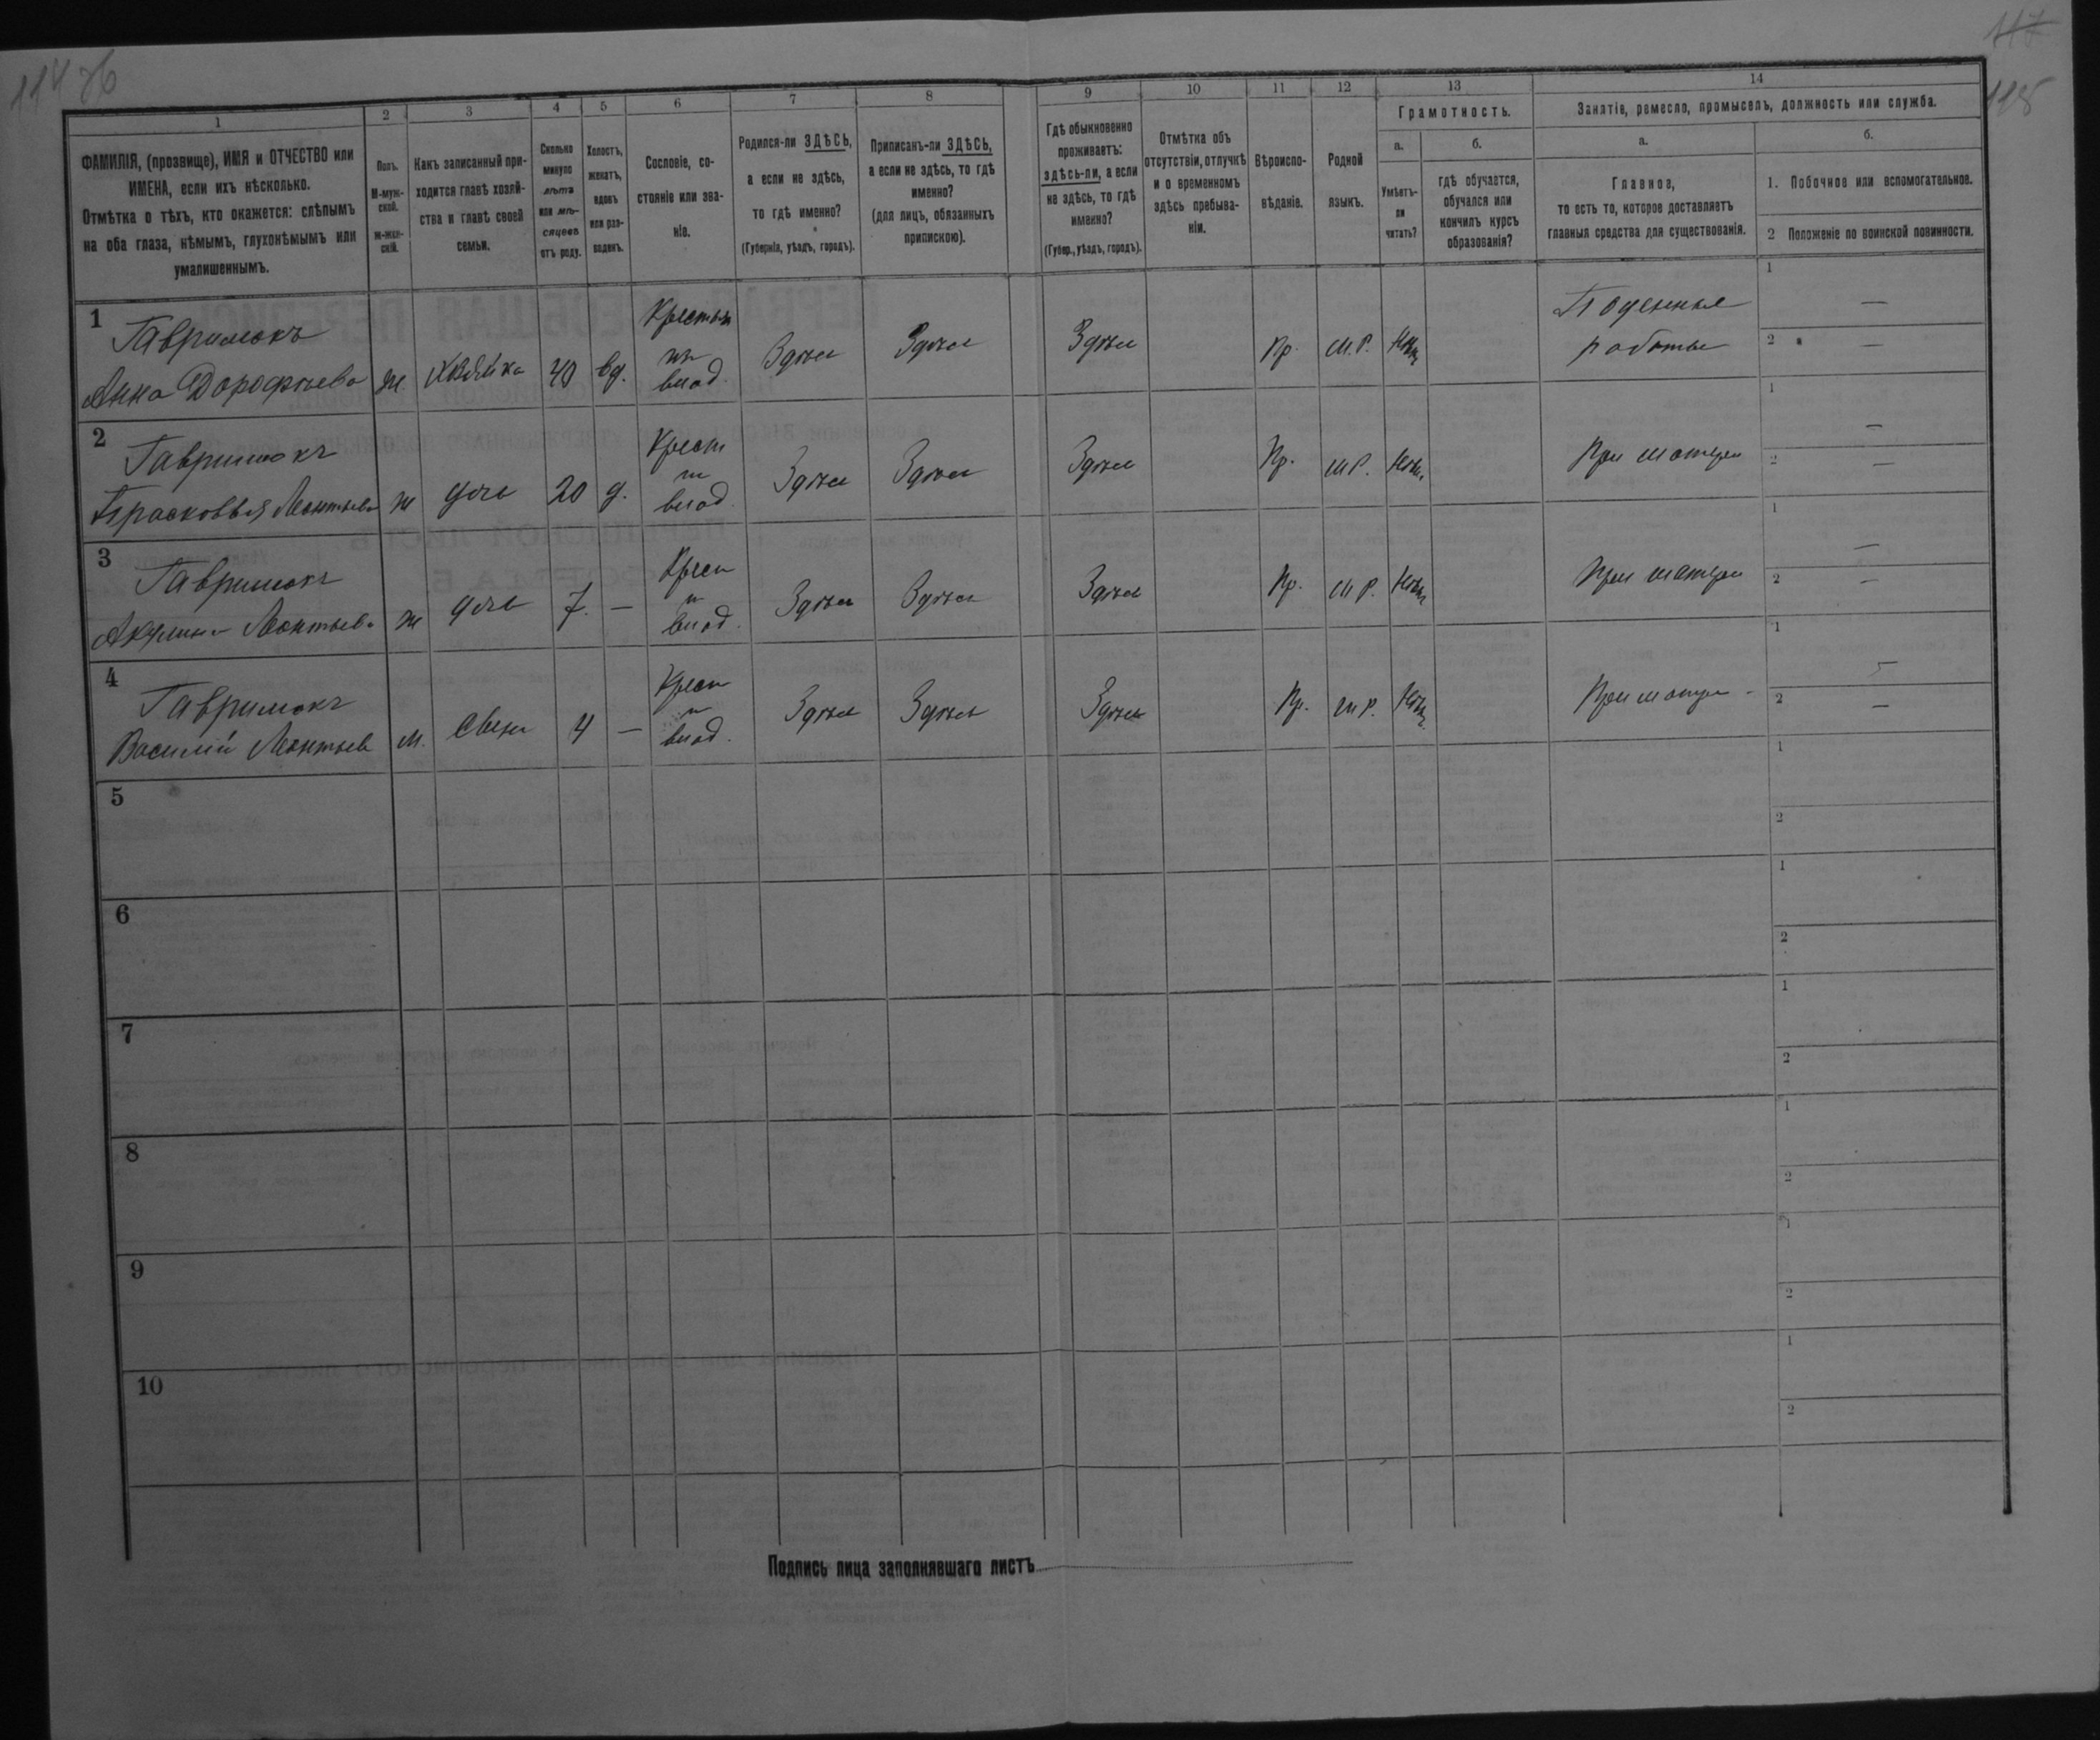 117
118
1
2
3
4
5
6
7
8
9
10
11
12
13
14
ФАМИЛІЯ, (прозвище), ИМЯ и ОТЧЕСТВО или
ИМЕНА, если ихъ нѣсколько.
Отмѣтка о тѣхъ, кто окажется: слѣпымъ
на оба глаза, нѣмымъ, глухонѣмымъ или
умалишеннымъ.
Полъ.
М-муж-
ской.
ж-жен-
скій.
Какъ записанный при-
ходится главѣ хозяй-
ства и главѣ своей
семьи.
Сколько
минуло
лѣтъ
или мѣ-
сяцевъ
отъ роду.
Холостъ,
женатъ,
вдовъ
или раз-
веденъ.
Сословіе, со-
стояніе или зва-
ніе.
Родился-ли ЗДѢСЬ,
а если не здѣсь,
то гдѣ именно?
(Губернія, уѣздъ, городъ).
Приписанъ-ли ЗДѢСЬ,
а если не здѣсь, то гдѣ
именно?
(для лицъ, обязанныхъ
припискою).
Гдѣ обыкновенно
проживаетъ:
здѣсь-ли, а если
не здѣсь, то гдѣ
именно?
(Губер., уѣздъ, городъ).
Отмѣтка объ
отсутствіи, отлучкѣ
и о временномъ
здѣсь пребыва-
ніи.
Вѣроиспо-
вѣданіе.
Родной
языкъ.
Грамотность.
а.
Умѣетъ-
ли
читать?
б.
гдѣ обучается,
обучался или
кончилъ курсъ
образованія?
Занятіе, ремесло, промыселъ, должность или служба.
а.
Главное,
то есть то, которое доставляетъ
главныя средства для существованія.
б.
1. Побочное или вспомогательное.
2 Положеніе по воинской повинности.
1
Гаврилюкъ
Анна Дорофѣева
ж
хозяйка
40
вд.
Крестьян
изъ
влад.
Здѣсь
Здѣсь
Здѣсь
Пр.
м.Р.
Нѣтъ
Поденныя
работы
1 —
2 —
2
Гаврилюкъ
Прасковья Леонтьева
ж
дочь
20
д.
Крест
из
влад.
Здѣсь
Здѣсь
Здѣсь
Пр.
м.Р.
Нѣтъ
При матери
1 —
2 —
3
Гаврилюкъ
Акулина Леонтьева
ж
дочь
7.
—
Крест
из
влад.
Здѣсь
Здѣсь
Здѣсь
Пр.
м.Р.
Нѣтъ
При матери
1 —
2 —
4
Гаврилюкъ
Василій Леонтьев
м.
сынъ
4
—
Крест
из
влад.
Здѣсь
Здѣсь
Здѣсь
Пр.
м.Р.
Нѣтъ
При матери
1 —
2 —
5
1
2
6
1
2
7
1
2
8
1
2
9
1
2
10
1
2
Подпись лица заполнявшаго листъ